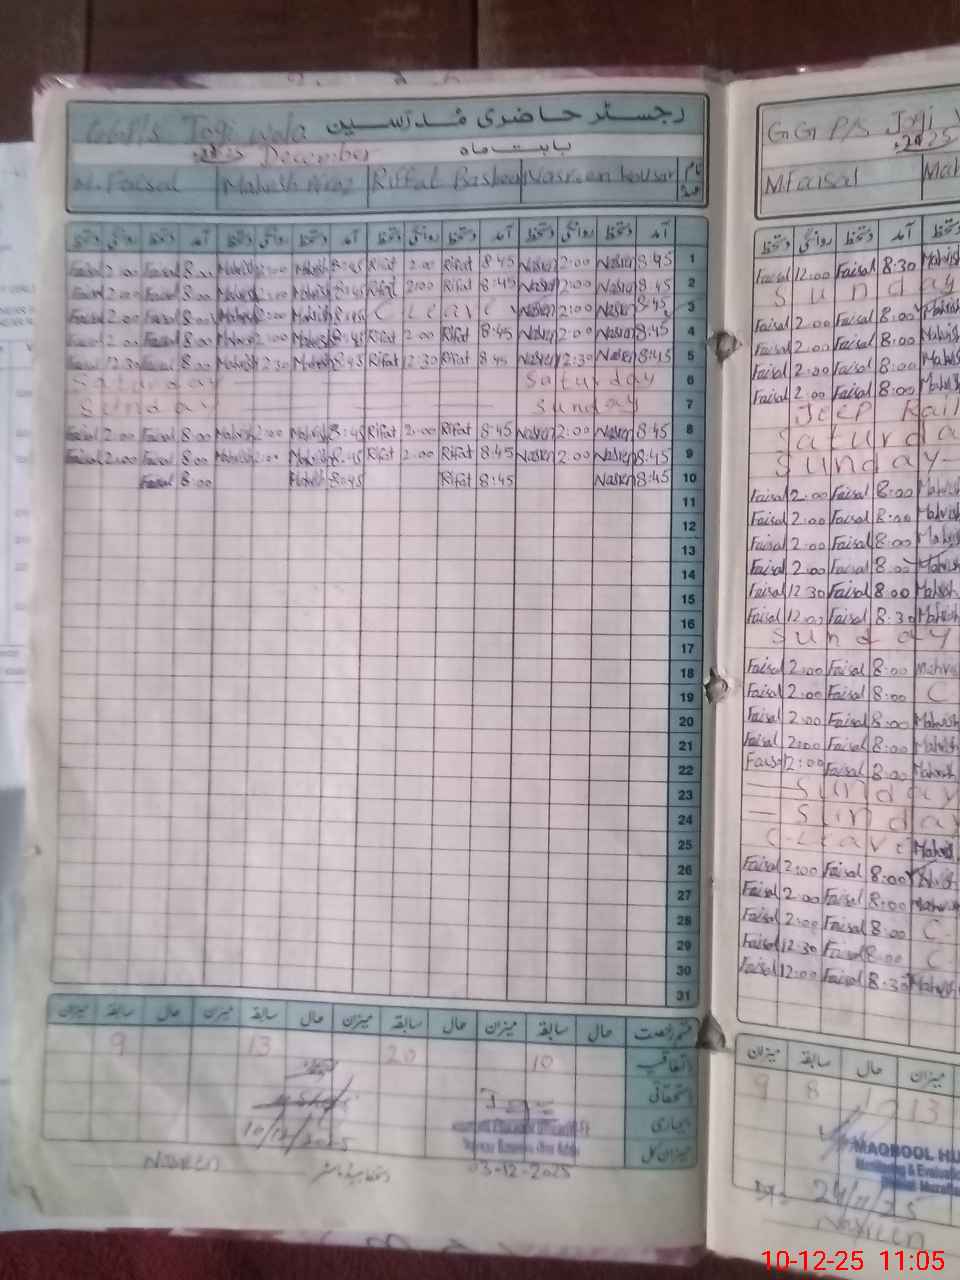 رجسٹر حاضری مُدرّسین
GGP/s Jogi wala
بابت ماہ December 2025
نام عہدہ Nasreen kousar Riffat Bashe Mahesh M. Faisal
آمد دستخط روانگی دستخط آمد دستخط روانگی دستخط آمد دستخط روانگی دستخط آمد دستخط روانگی دستخط
Faisal 2:00 Faisal 8:00 Mahvish 2:00 Mahvish 8:45 Rifat 2:00 Rifat 8:45 Nasren 2:00 Nasren 8:45 1
Faisal 2:00 Faisal 8:00 Mahvish 2:00 Mahvish 8:45 Rifat 2:00 Rifat 8:45 Nasren 2:00 Nasren 8:45 2
Faisal 2:00 Faisal 8:00 Mahvish 2:00 Mahvish 8:45 C Leave Nasren 2:00 Nasren 8:45 3
Faisal 2:00 Faisal 8:00 Mahvish 2:00 Mahvish 8:45 Rifat 2:00 Rifat 8:45 Nasren 2:00 Nasren 8:45 4
Faisal 12:30 Faisal 8:00 Mahvish 12:30 Mahvish 8:45 Rifat 12:30 Rifat 8:45 Nasren 12:30 Nasren 8:45 5
Saturday Saturday 6
Sunday Sunday 7
Faisal 2:00 Faisal 8:00 Mahvish 2:00 Mahvish 8:45 Rifat 2:00 Rifat 8:45 Nasren 2:00 Nasren 8:45 8
Faisal 2:00 Faisal 8:00 Mahvish 2:00 Mahvish 8:45 Rifat 2:00 Rifat 8:45 Nasren 2:00 Nasren 8:45 9
Faisal 8:00 Mahvish 8:45 Rifat 8:45 Nasren 8:45 10
11
12
13
14
15
16
17
18
19
20
21
22
23
24
25
26
27
28
29
30
31
قسم رخصت حال سابقہ میزان حال سابقہ میزان حال سابقہ میزان حال سابقہ میزان
اتفاقیہ 10 20 13 9
استحقاقی
بیماری
میزان کل
10/12/2025
03-12-2025
دستخط ہیڈ ماسٹر
Nasreen
GGP/S Jogi
2025
M Faisal Mah
دستخط روانگی دستخط آمد دستخط
Faisal 12:00 Faisal 8:30 Mahvish
Sunday
Faisal 2:00 Faisal 8:00 Mahvish
Faisal 2:00 Faisal 8:00 Mahvish
Faisal 2:00 Faisal 8:00 Mahvish
Faisal 2:00 Faisal 8:00 Mahvish
Saturda
Sunday
Faisal 2:00 Faisal 8:00 Mahvish
Faisal 2:00 Faisal 8:00 Mahvish
Faisal 2:00 Faisal 8:00 Mahvish
Faisal 2:00 Faisal 8:00 Mahvish
Faisal 12:30 Faisal 8:00 Mahvish
Faisal 12:00 Faisal 8:30 Mahvish
Sunday
Faisal 2:00 Faisal 8:00 Mahvis
Faisal 2:00 Faisal 8:00 C
Faisal 2:00 Faisal 8:00 Mahvish
Faisal 2:00 Faisal 8:00 Mahvish
Faisal 2:00 Faisal 8:00 Mahvish
Sunday
Sunday
C-Leave Mahvish
Faisal 2:00 Faisal 8:00
Faisal 2:00 Faisal 8:00 Mahvish
Faisal 2:00 Faisal 8:00 C
Faisal 12:30 Faisal 8:00 C
Faisal 12:00 Faisal 8:30 Mahvish
میزان سابقہ حال میزان
9 8 1 13
MAQBOOL HU
Monitoring & Evaluati
District Muzaffa
24/11/25
Nasreen
10-12-25 11:05